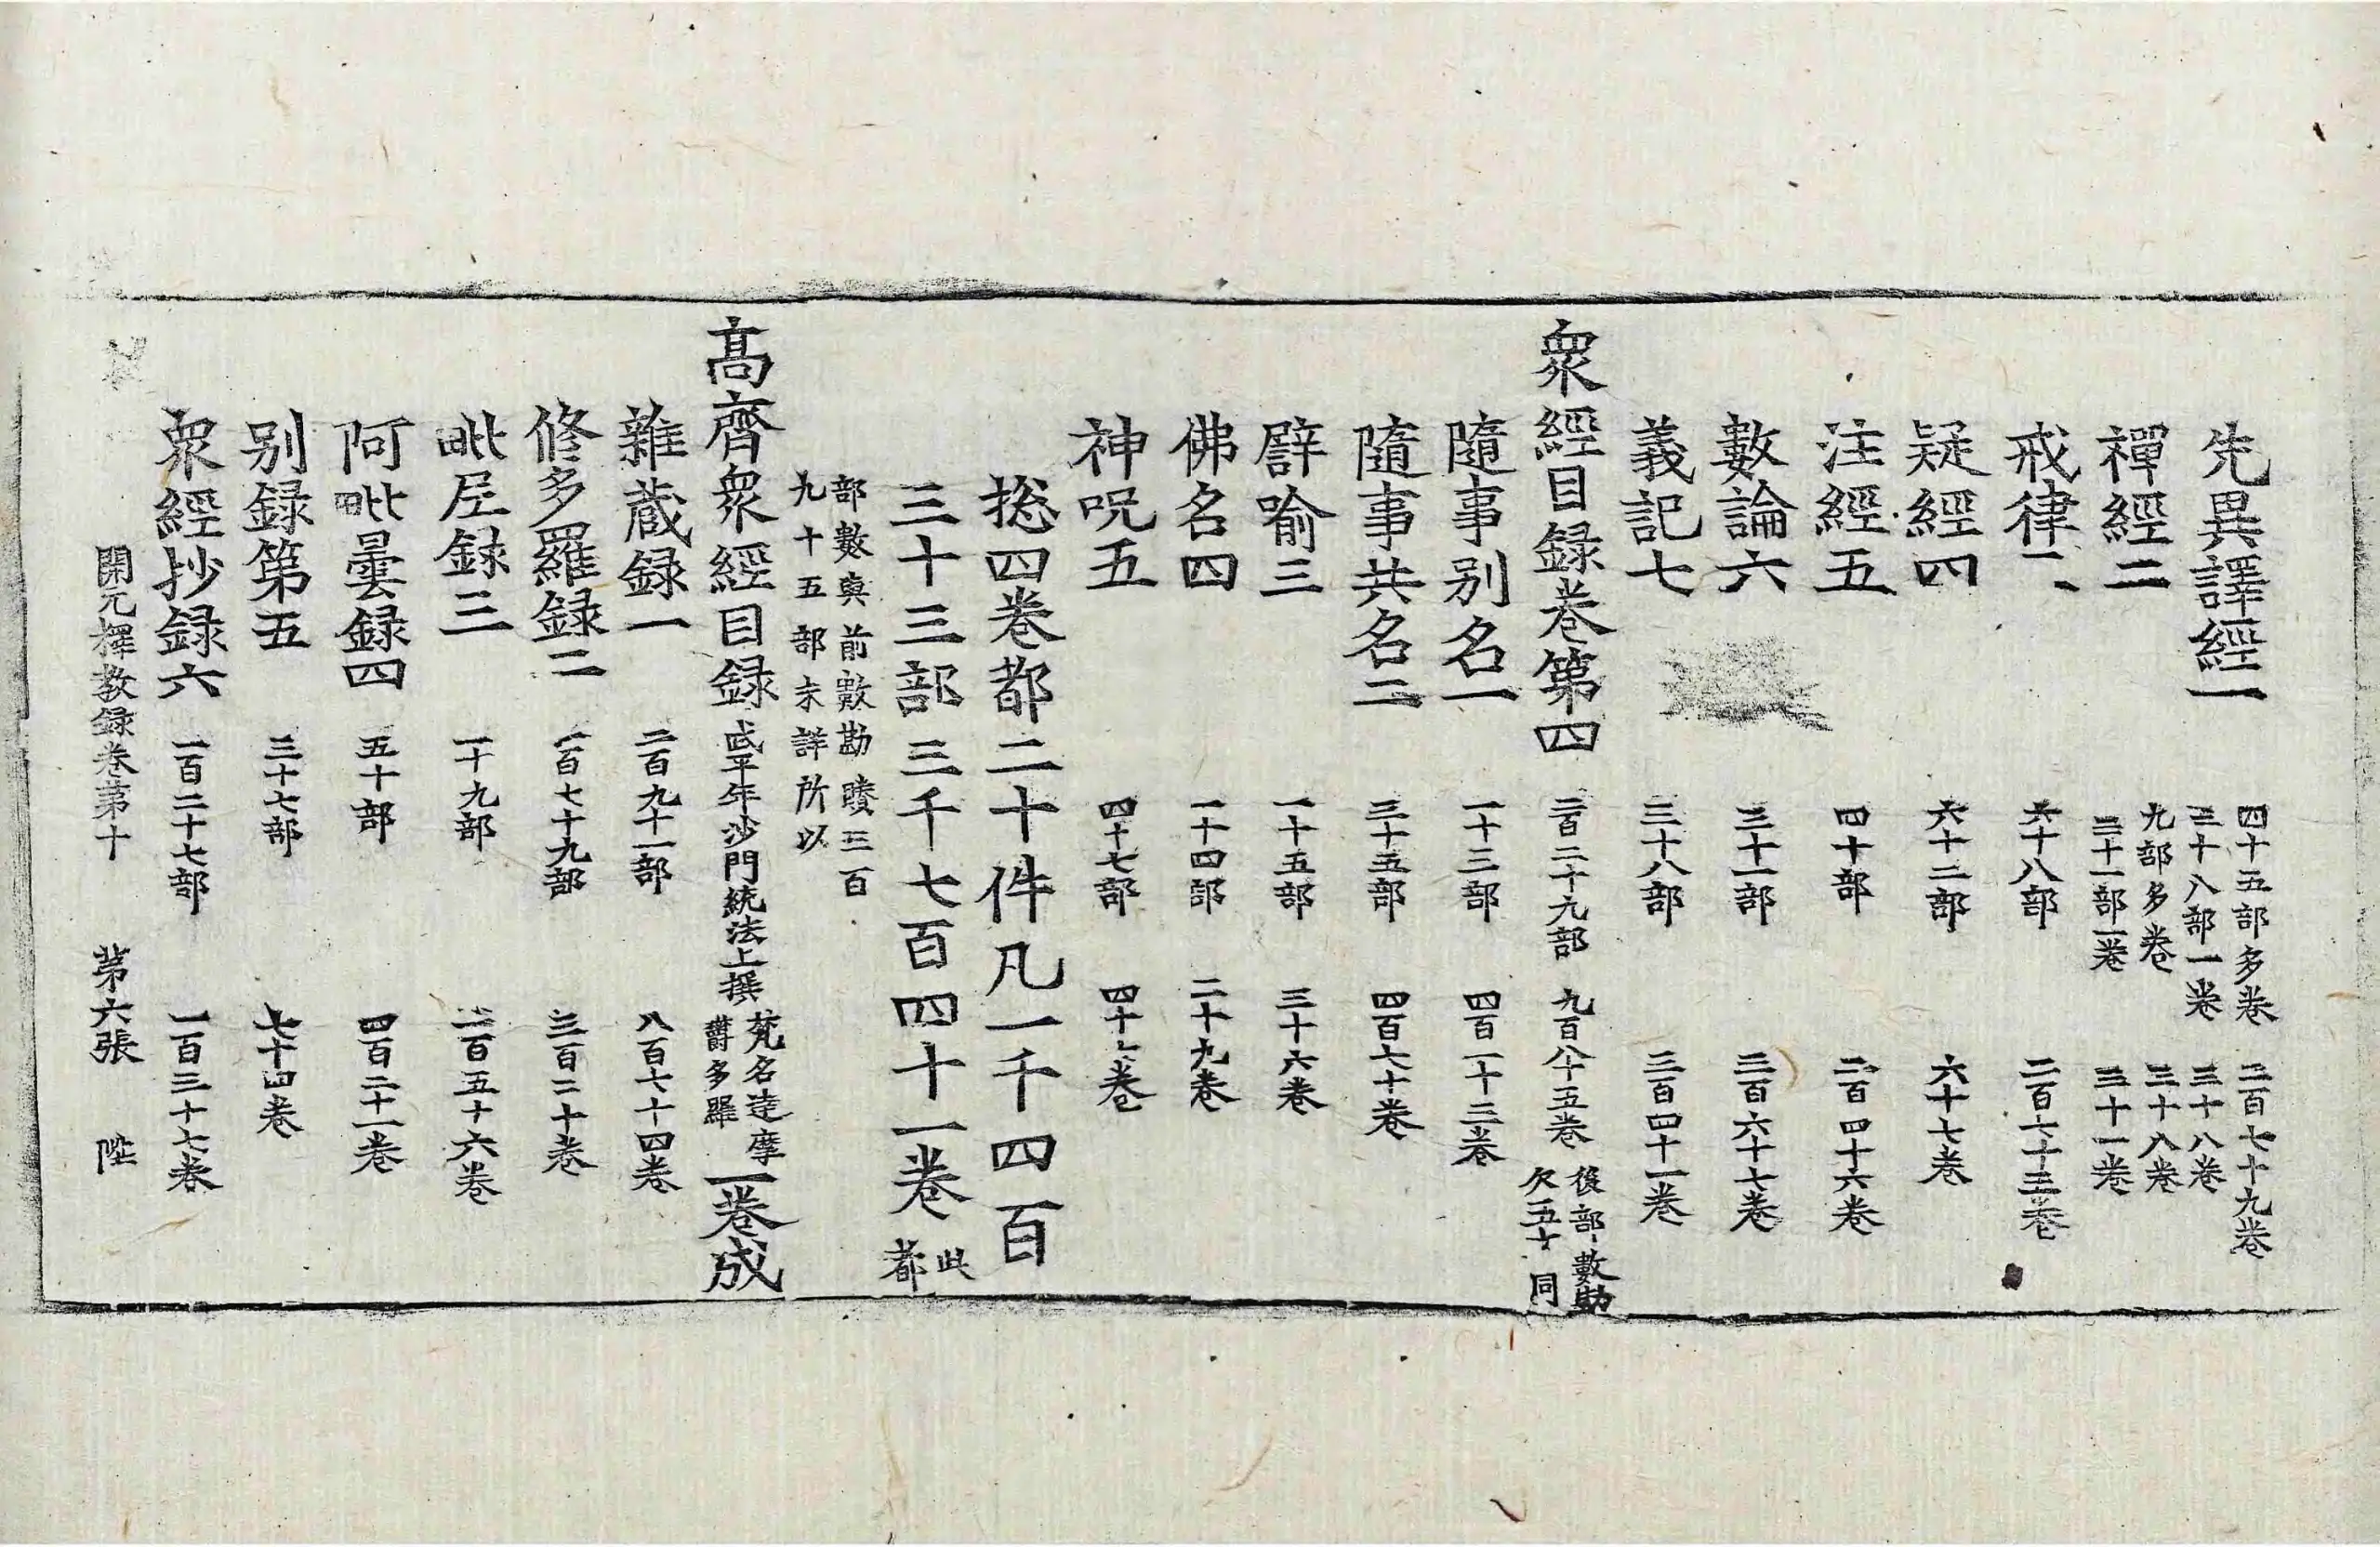 先異譯經一 四十五部多卷 三十八部一卷 二百七十九卷 三十八卷
禪經二 九部多卷 三十一部一卷 三十八卷 三十一卷
戒律二 六十八部 二百七十三卷
疑經四 六十二部 六十七卷
注經五 四十部 二百四十六卷
數論六 三十一部 三百六十七卷
義記七 三十八部 三百四十一卷
衆經目録卷第四 二百二十九部 九百八十五卷 後部數勘欠五十同
隨事别名一 一十三部 四百一十三卷
隨事共名二 三十五部 四百七十卷
譬喻三 一十五部 三十六卷
佛名四 一十四部 二十九卷
神呪五 四十七部 四十七卷
捴四卷都二十件凡一千四百
三十三部三千七百四十一卷 此都
部數與前數勘賸三百九十五部未詳所以
髙齊衆經目録 武平年沙門統法上撰 梵名達摩欝多羅 一卷成
雜蔵録一 二百九十一部 八百七十四卷
修多羅録二 一百七十九部 三百二十卷
毗尼録三 一十九部 二百五十六卷
阿毗曇録四 五十部 四百二十一卷
别録第五 三十七部 七十四卷
衆經抄録六 一百二十七部 一百三十七卷
開元釋教録卷第十 第六張 陞